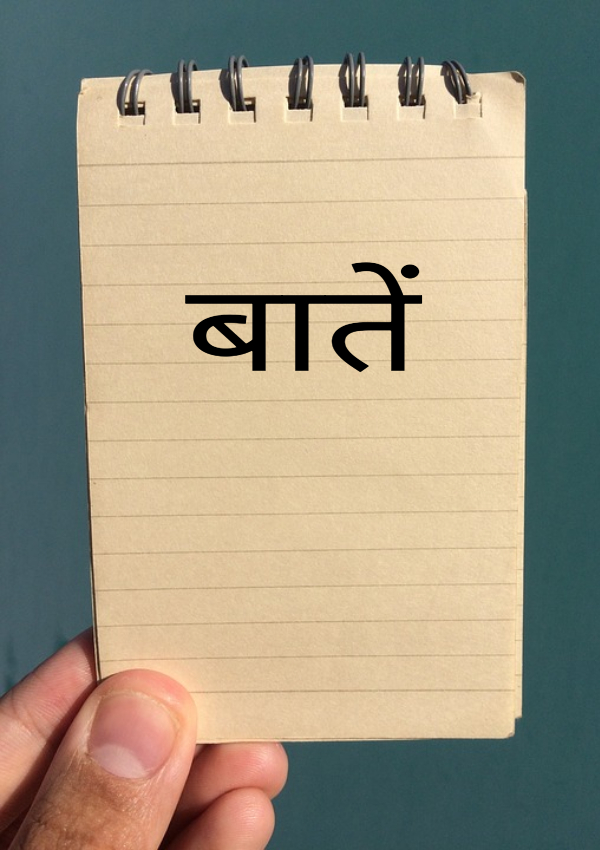 बातें